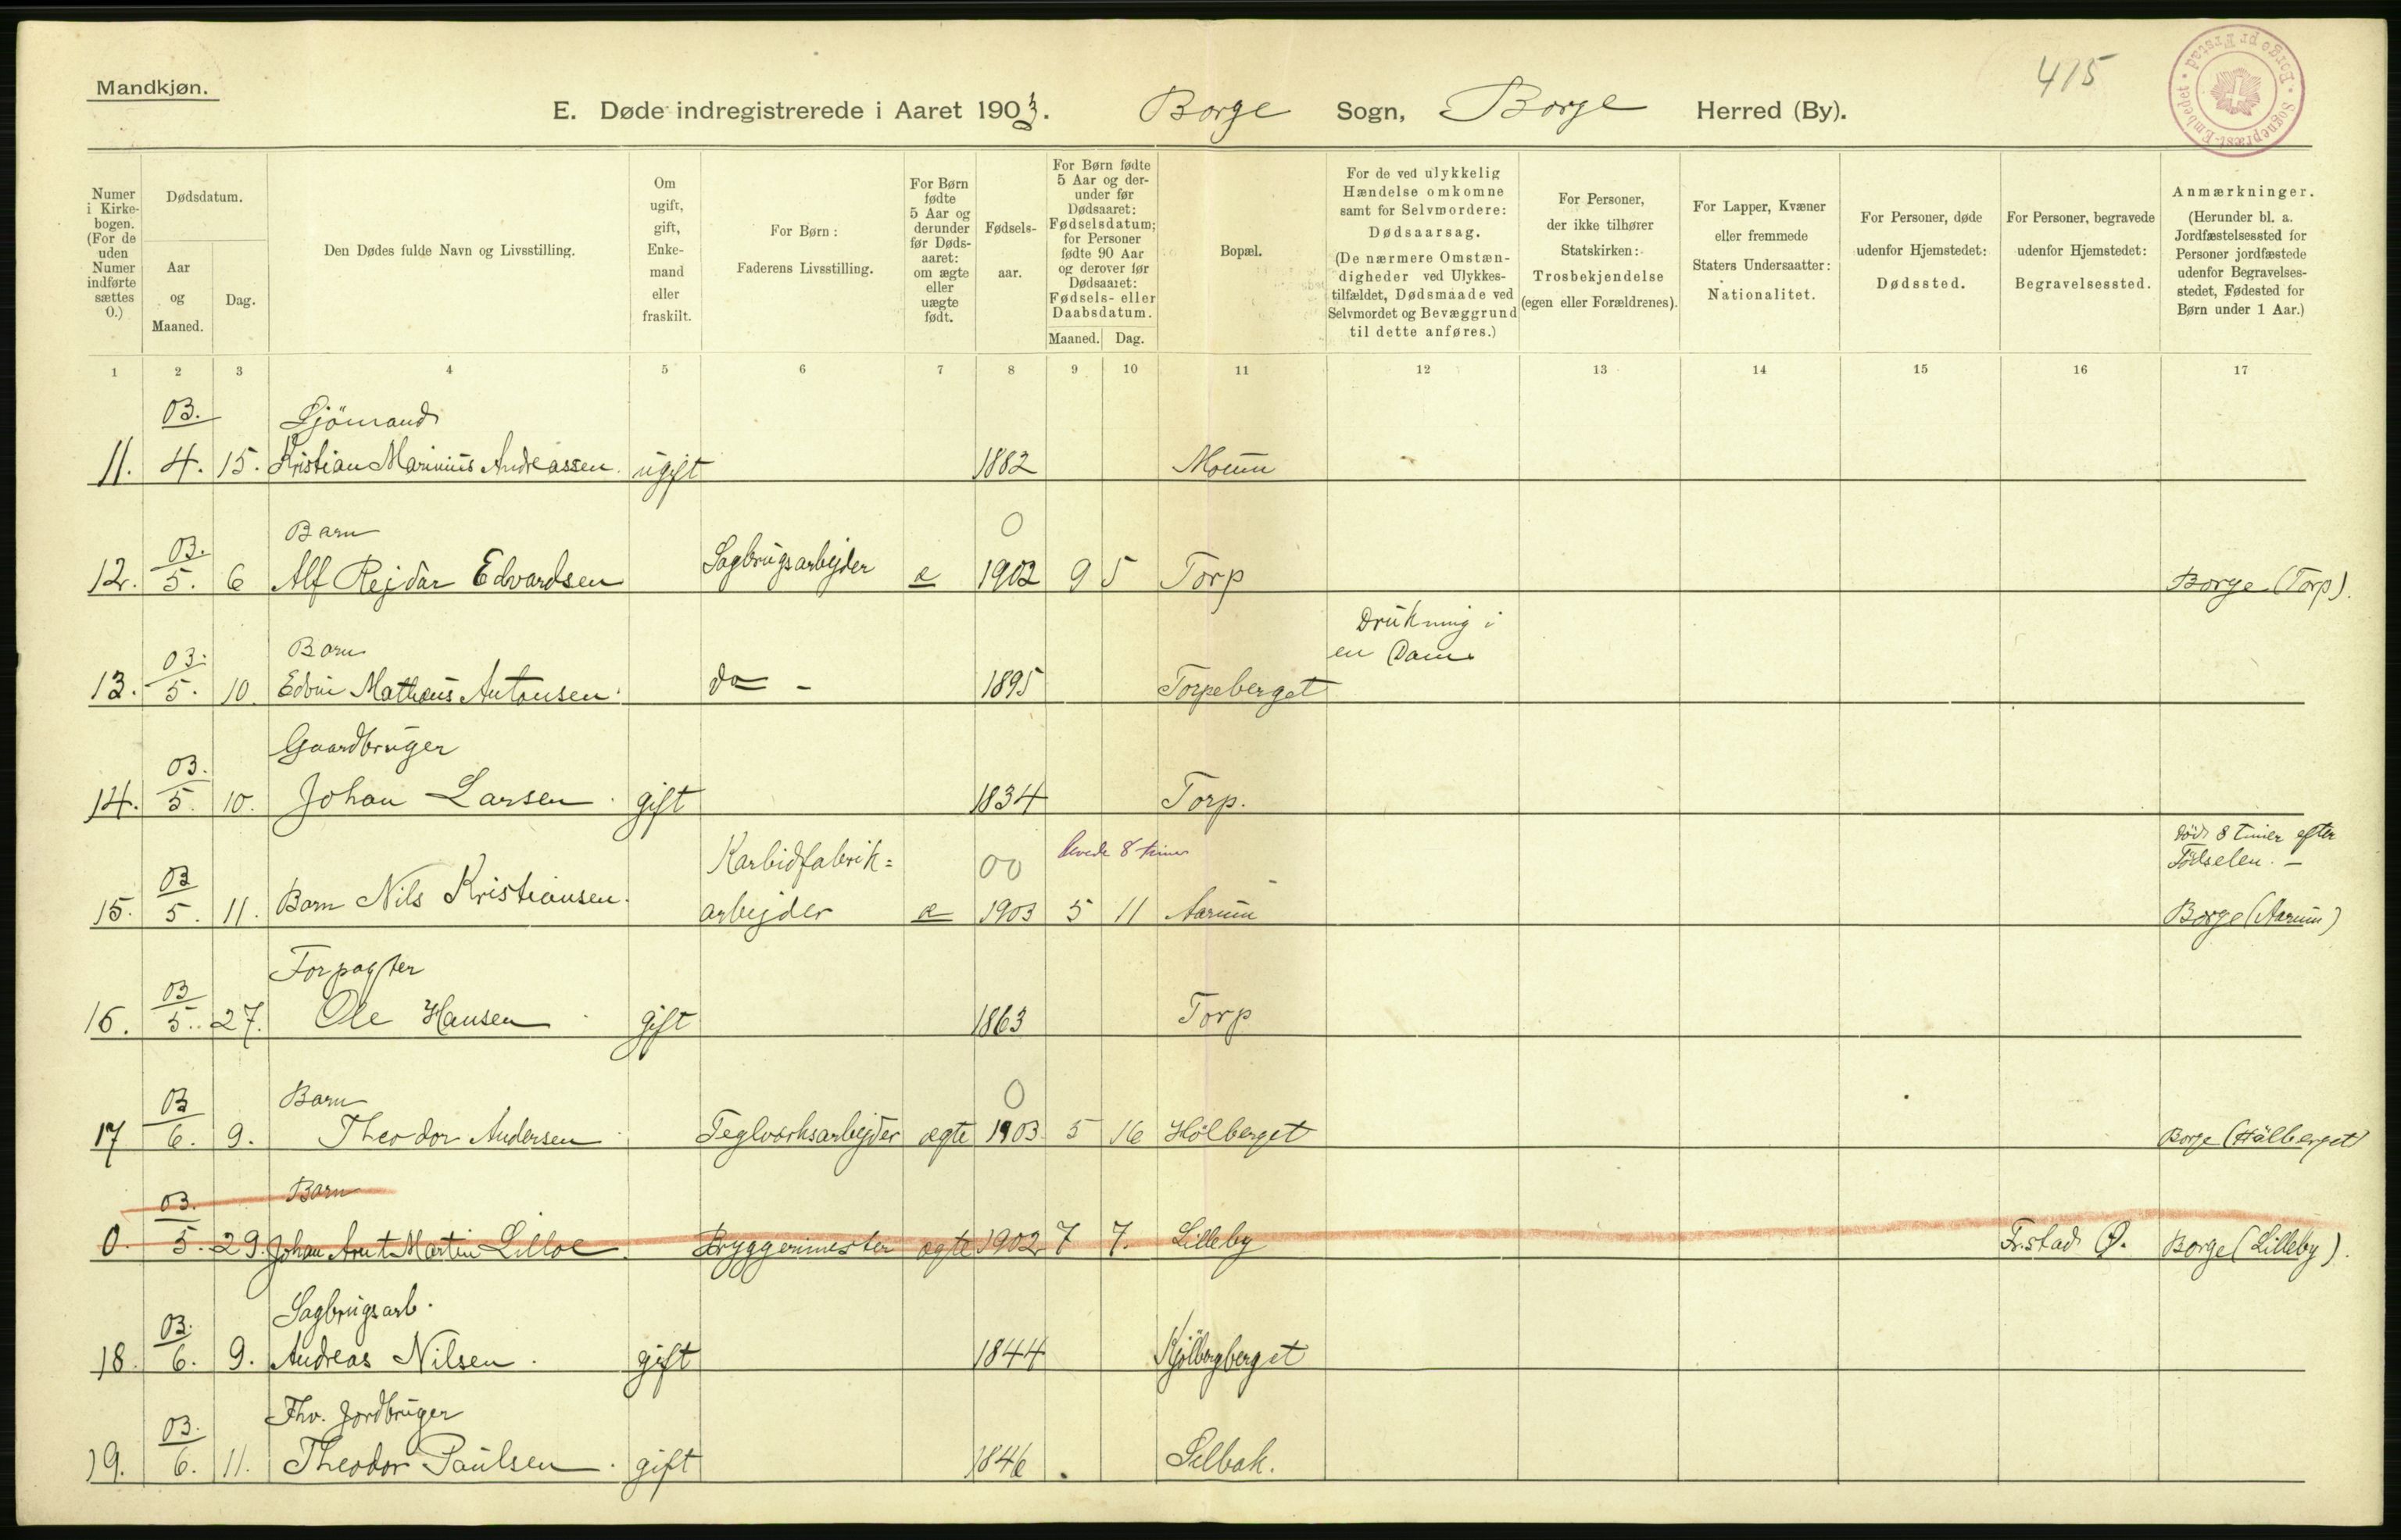 Mandkjøn.
415
Borge pr Frstad · Sognepræst-Embedet ·
E. Døde indregistrerede i Aaret 1903. Borge Sogn, Borge Herred (By).
Numer i Kirkebogen. (For de uden Numer indførte sættes 0.)
Dødsdatum.
Aar og Maaned.
Dag.
Den Dødes fulde Navn og Livsstilling.
Om ugift, gift, Enkemand eller fraskilt.
For Børn: Faderens Livsstilling.
For Børn fødte 5 Aar og derunder før Dødsaaret: om ægte eller uægte født.
Fødselsaar.
For Børn fødte 5 Aar og derunder før Dødsaaret: Fødselsdatum; for Personer fødte 90 Aar og derover før Dødsaaret: Fødsels- eller Daabsdatum.
Maaned. Dag.
Bopæl.
For de ved ulykkelig Hændelse omkomne samt for Selvmordere: Dødsaarsag. (De nærmere Omstændigheder ved Ulykkestilfældet, Dødsmaade ved Selvmordet og Bevæggrund til dette anføres.)
For Personer, der ikke tilhører Statskirken: Trosbekjendelse (egen eller Forældrenes).
For Lapper, Kvæner eller fremmede Staters Undersaatter: Nationalitet.
For Personer, døde udenfor Hjemstedet: Dødssted.
For Personer, begravede udenfor Hjemstedet: Begravelsessted.
Anmærkninger. (Herunder bl. a. Jordfæstelsessted for Personer jordfæstede udenfor Begravelsesstedet, Fødested for Børn under 1 Aar.)
1 2 3 4 5 6 7 8 9 10 11 12 13 14 15 16 17
03. Sjömand
11. 4. 15. Kristian Marinius Andreassen. ugift 1882 Moum
03. Barn 0
12. 5. 6 Alf Rejdar Edvardsen Sagbrugsarbejder æ 1902 9 5 Torp Borge (Torp).
Drukning i
03. Barn en Dam
13. 5. 10. Edvin Mathæus Antonsen. do - 1895 Torpeberget
03. Gaardbruger
14. 5. 10. Johan Larsen. gift 1834 Torp.
Karbidfabrik= 00 levede 8 timer död 8 Timer efter
03 Födselen. -
15. 5. 11. Barn Nils Kristiansen. arbejder æ 1903 5 11 Aarum Borge (Aarum)
03 Forpagter
16. 5. 27. Ole Hansen gift 1863 Torp
03 Barn 0
17 6. 9. Theodor Andersen Teglværksarbejder ægte 1903 5 16 Hölberget Borge (Hölberget)
03. Barn
0. 5. 29. Johan Arnt Martin Lilloe Bryggerimester ægte 1902 7 7. Lilleby Fr.stad Ø. Borge (Lilleby).
03. Sagbrugsarb.
18. 6. 9. Andreas Nilsen. gift 1844 Kjölbergberget
03. Fhv. Jordbruger
19. 6. 11. Theodor Paulsen. gift 1846 Selbak.